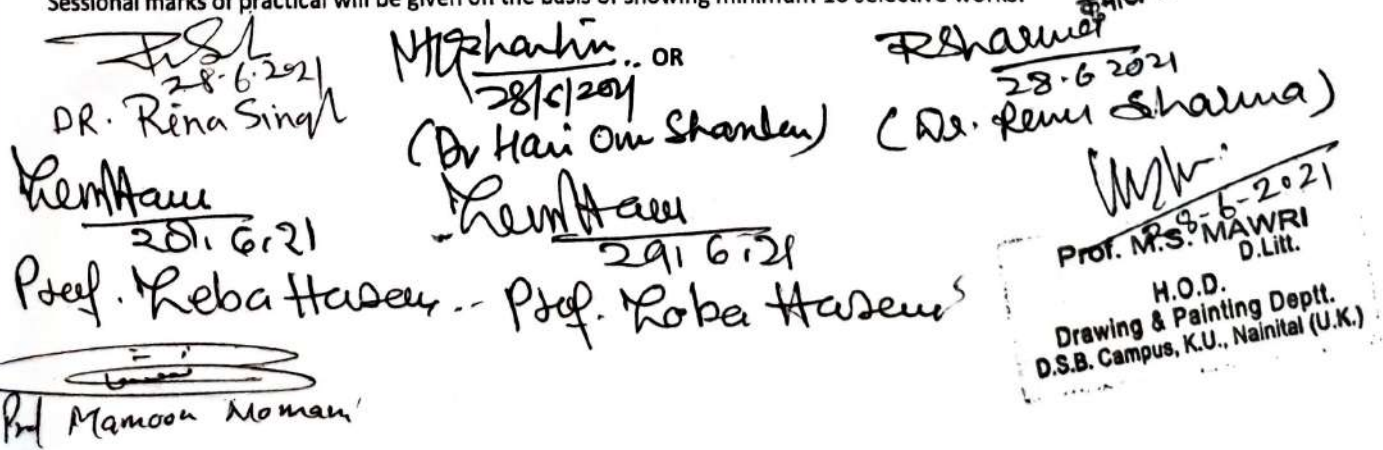 Sessional marks of practical will be given on the basis of showing minimum 10 selective works.
28.6.2021
DR. Rina Singh
OR
28/6/2021
(Dr Hari Om Shankar)
RSharma
28.6 2021
(Dr. Renu Sharma)
28.6.21
Prof. Zeba Hasan
29.6.21
Prof. Zeba Hasan
28-6-2021
Prof. M.S. MAWRI
D.Litt.
H.O.D.
Drawing & Painting Deptt.
D.S.B. Campus, K.U., Nainital (U.K.)
Prof Mamoon Nomani